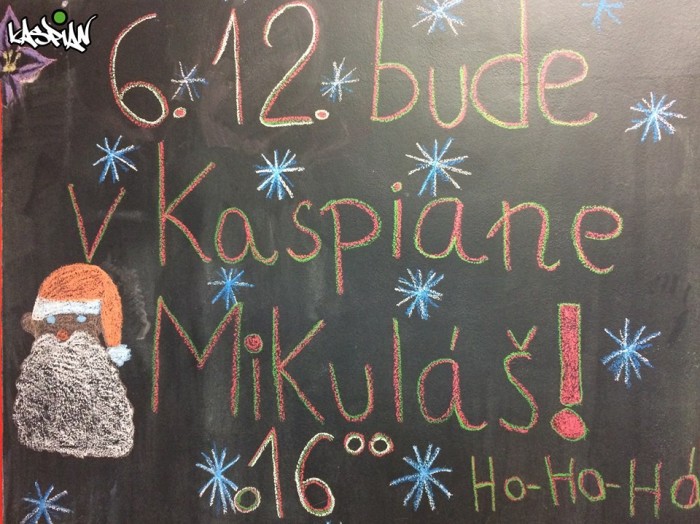 KASPIAN
6.12. bude
v Kaspiane
Mikuláš!
o16°°
Ho-Ho-Hó